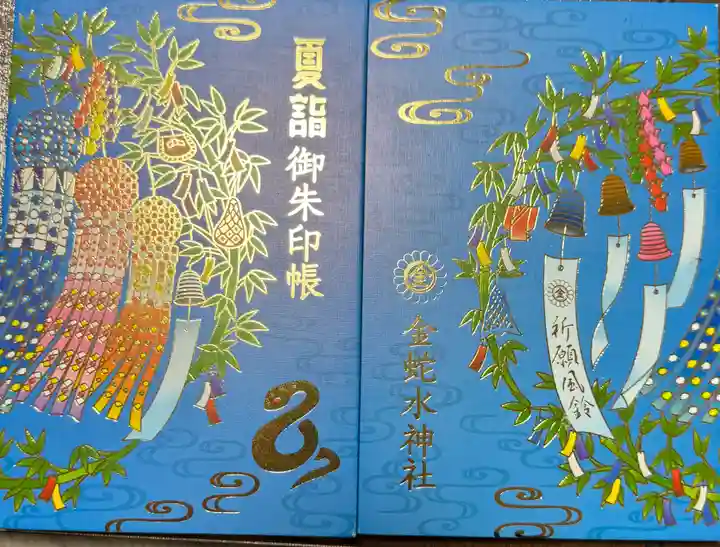 夏詣
御朱印帳
金
金蛇水神社
金
祈願風鈴